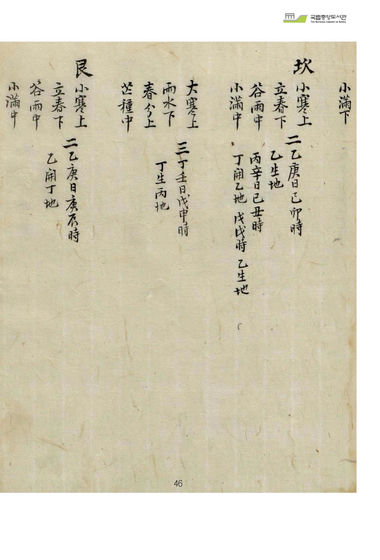 국립중앙도서관
小滿下
坎
小寒上
立春下
谷雨中
小滿中
二乙庚日己卯時
乙生地
丙辛日己丑時
丁開乙地 戊戌時 乙生地
大寒上
雨水下
春分上
芒種中
三丁壬日戊申時
丁生丙地
艮
小寒上
立春下
谷雨中
小滿中
二乙庚日庚辰時
乙開丁地
46